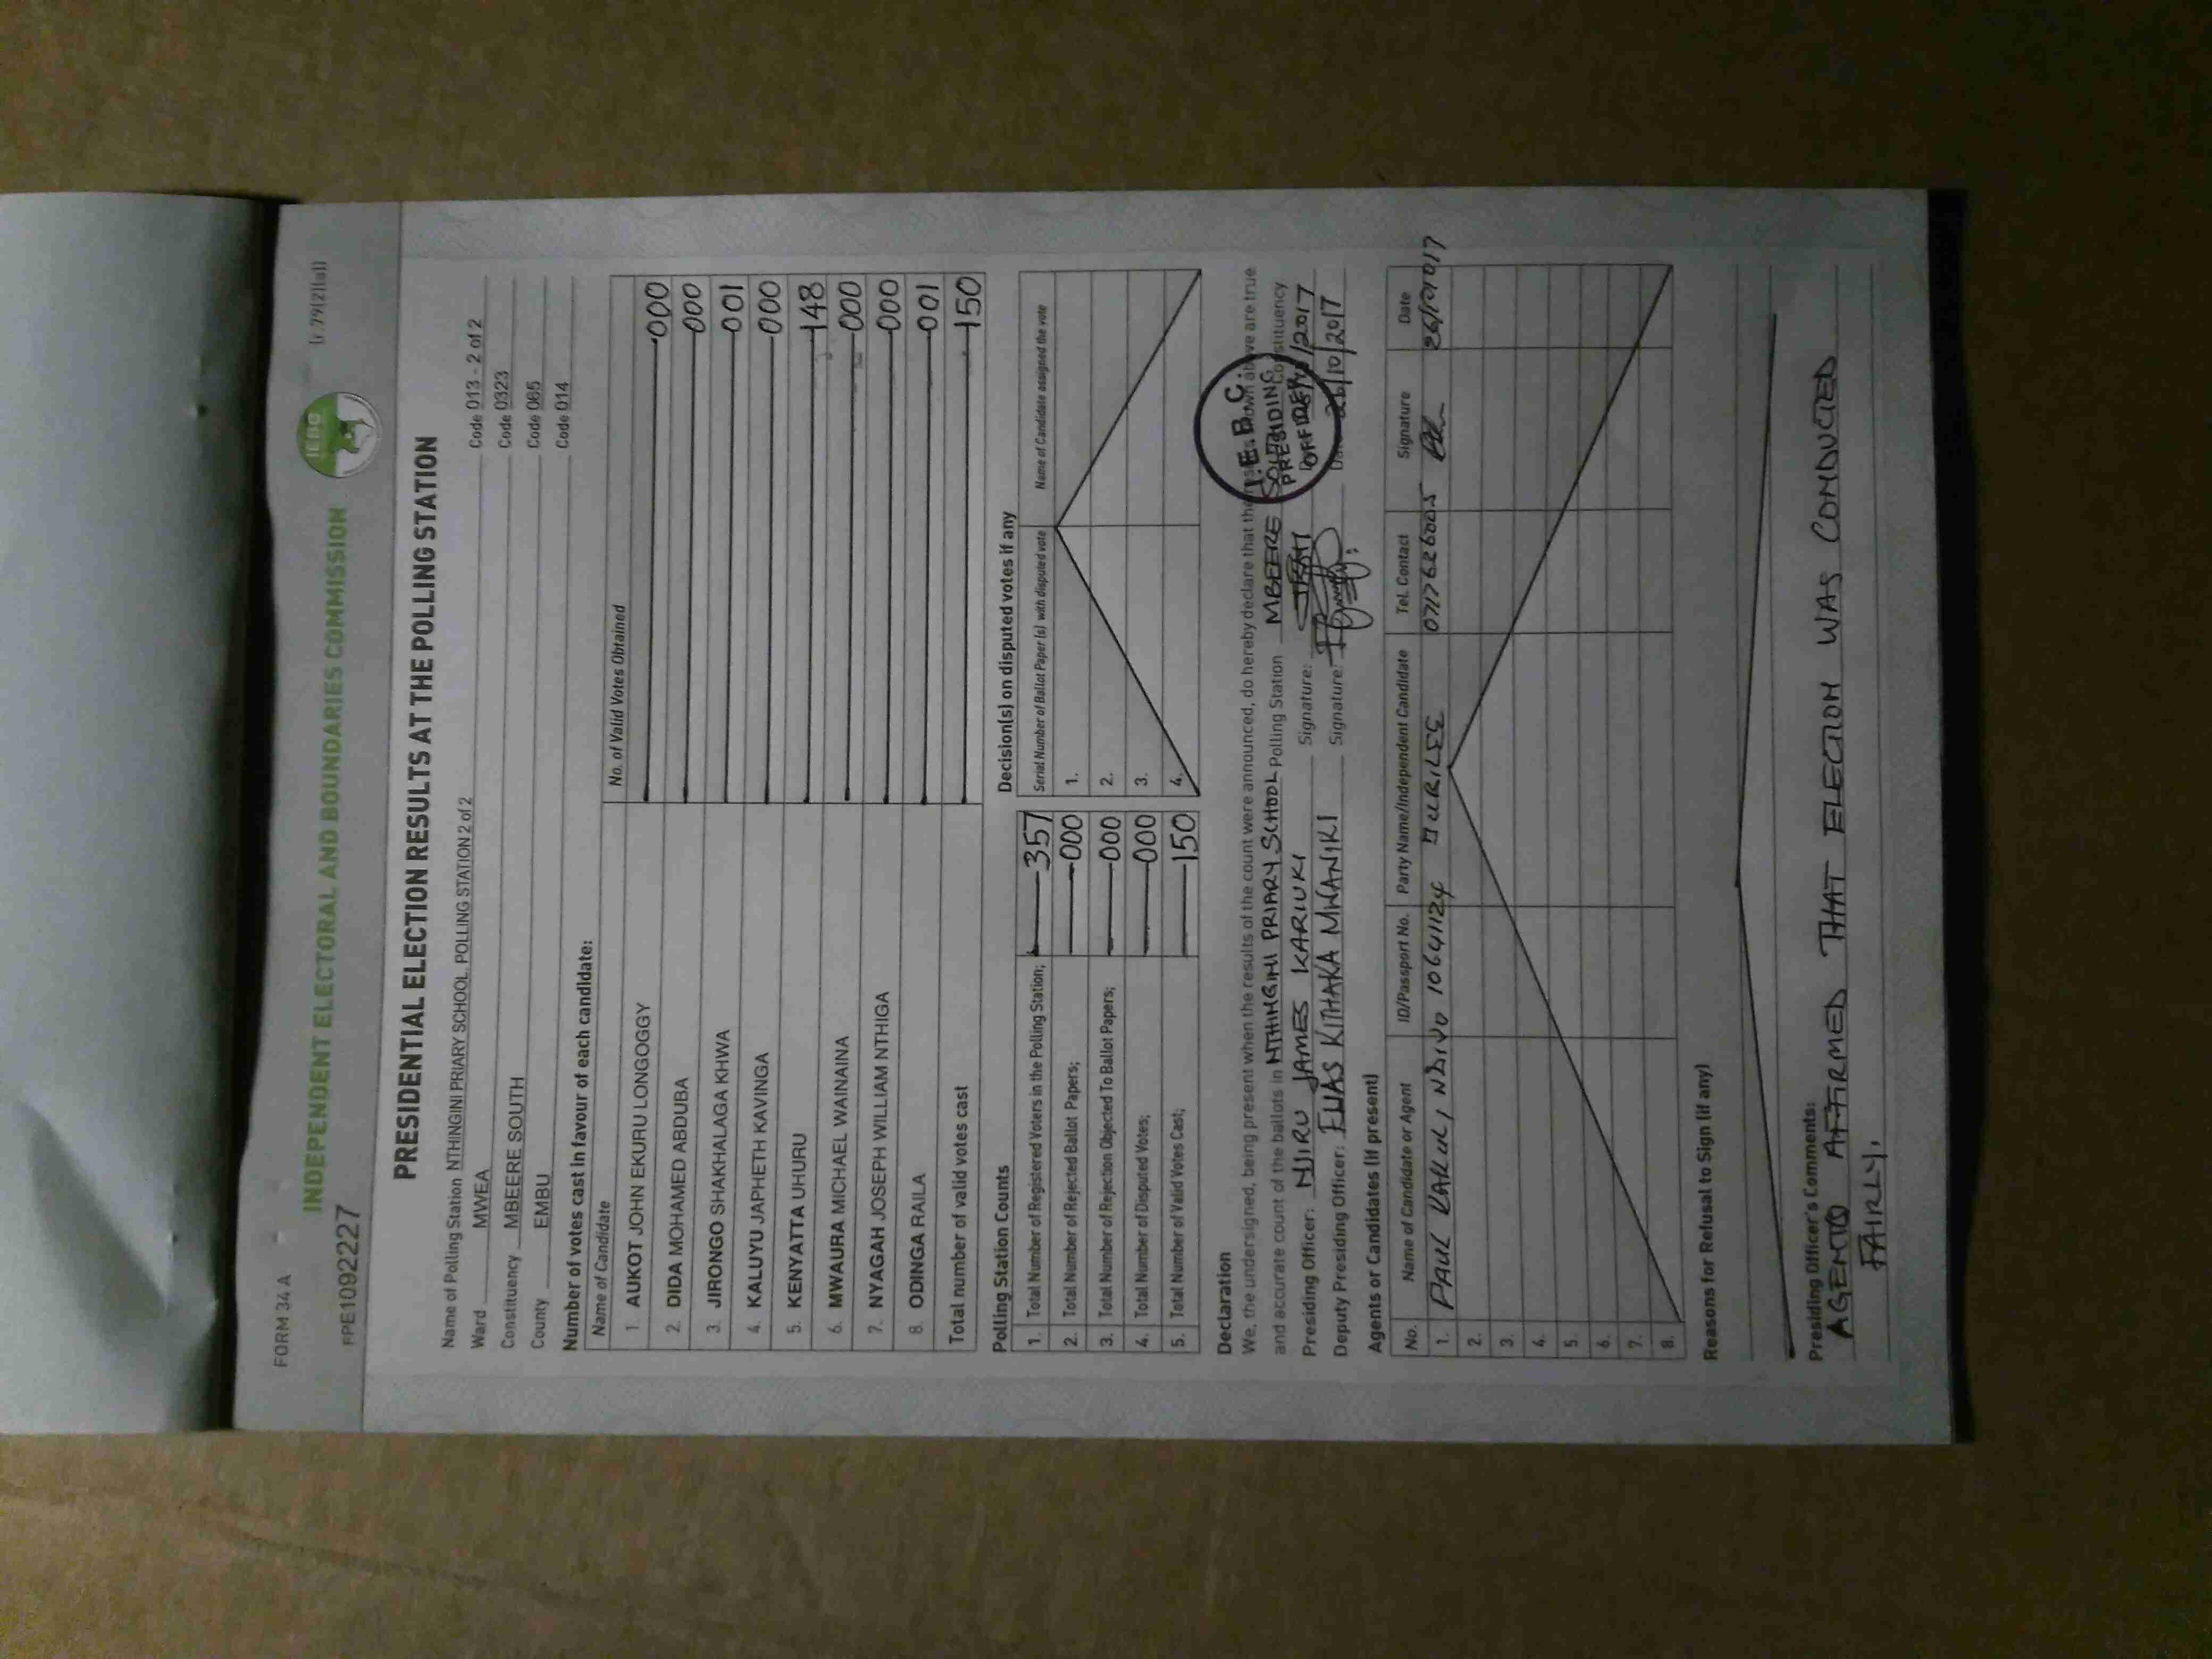 FORM 34 A
[r 79(2)(a)]
IEBC
INDEPENDENT ELECTORAL AND BOUNDARIES COMMISSION
FPE1092227
PRESIDENTIAL ELECTION RESULTS AT THE POLLING STATION
Name of Polling Station NTHINGINI PRIARY SCHOOL, POLLING STATION 2 of 2 Code 013 - 2 of 2
Ward MVEA Code 0323
Constituency MBEERE SOUTH Code 065
County EMBU Code 014
Number of votes cast in favour of each candidate:
Name of Candidate No. of Valid Votes Obtained
1. AUKOT JOHN EKURU LONGOGGY 000
2. DIDA MOHAMED ABDUBA 000
3. JIRONGO SHAKHALAGA KHWA 001
4. KALUYU JAPHETH KAVINGA 000
5. KENYATTA UHURU 148
6. MWAURA MICHAEL WAINAINA 000
7. NYAGAH JOSEPH WILLIAM NTHIGA 000
8. ODINGA RAILA 001
Total number of valid votes cast 150
Polling Station Counts
1. Total Number of Registered Voters in the Polling Station; 357
2. Total Number of Rejected Ballot Papers; 000
3. Total Number of Rejection Objected To Ballot Papers; 000
4. Total Number of Disputed Votes; 000
5. Total Number of Valid Votes Cast; 150
Decision(s) on disputed votes if any
Serial Number of Ballot Paper (s) with disputed vote Name of Candidate assigned the vote
1.
2.
3.
4.
Declaration
We, the undersigned, being present when the results of the count were announced, do hereby declare that the results shown above are true
and accurate count of the ballots in NTHINGINI PRIARY SCHOOL Polling Station MBEERE SOUTH Constituency
Presiding Officer: NJIRU JAMES KARIUKI Signature: /2017
Deputy Presiding Officer: ELIAS KITHAKA MWANIKI Signature: Date 26/10/2017
I.E.B.C.
PRESIDING
OFFICER
Agents or Candidates (if present)
No. Name of Candidate or Agent ID/Passport No. Party Name/Independent Candidate Tel. Contact Signature Date
1. PAUL NDIVO 10641124 JUBILEE 0717626005
2.
3.
4.
5.
6.
7.
8.
Reasons for Refusal to Sign (if any)
Presiding Officer's Comments:
AGENTS AFFIRMED THAT ELECTION WAS CONDUCTED
FAIRLY.